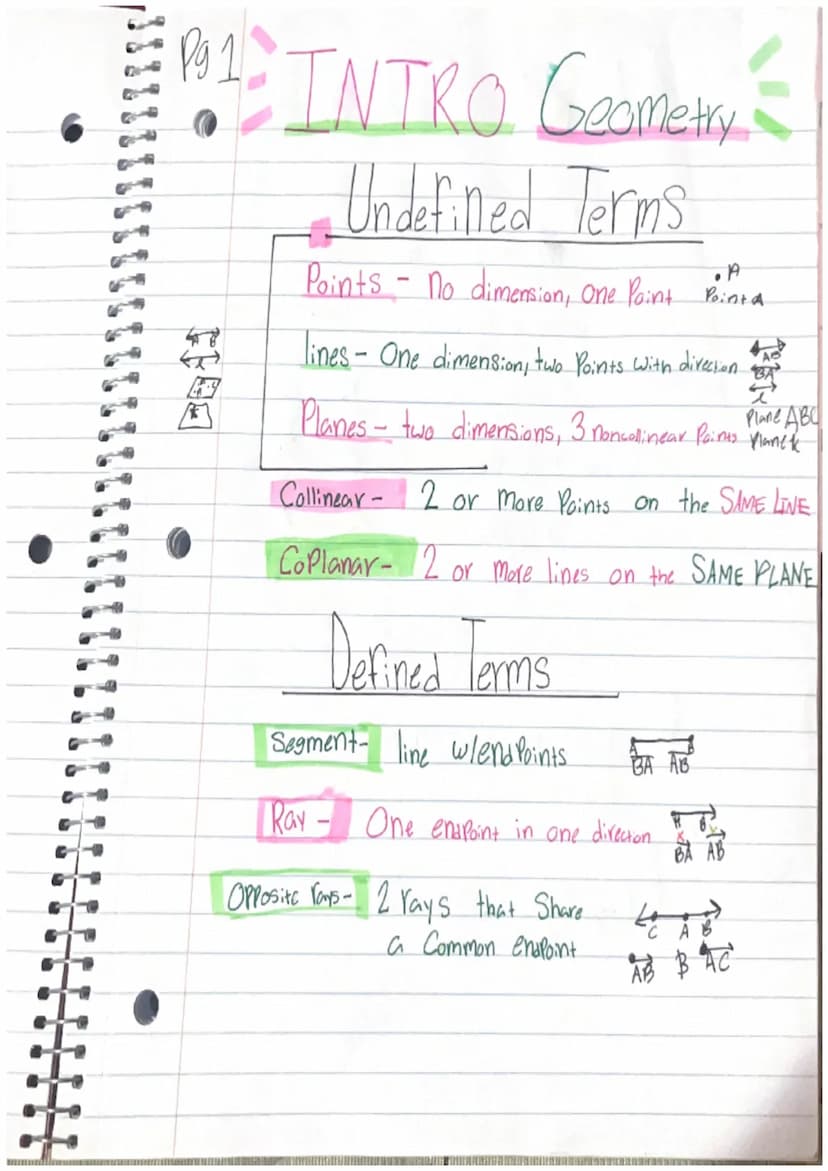 Pg 1
INTRO Geometry
Undefined Terms
Points - No dimension, One Point
• A
Point A
lines - One dimension, two Points with direction
A B
l
AB
BA
l
Planes - two dimensions, 3 noncollinear Points
Plane ABC
Plane k
Collinear - 2 or more Points on the SAME LINE
CoPlanar - 2 or more lines on the SAME PLANE
Defined Terms
Segment - line w/endPoints
A B
BA AB
Ray - One endpoint in one direction
A B
BA AB
Opposite rays - 2 rays that Share
a Common endpoint
C A B
AB B AC